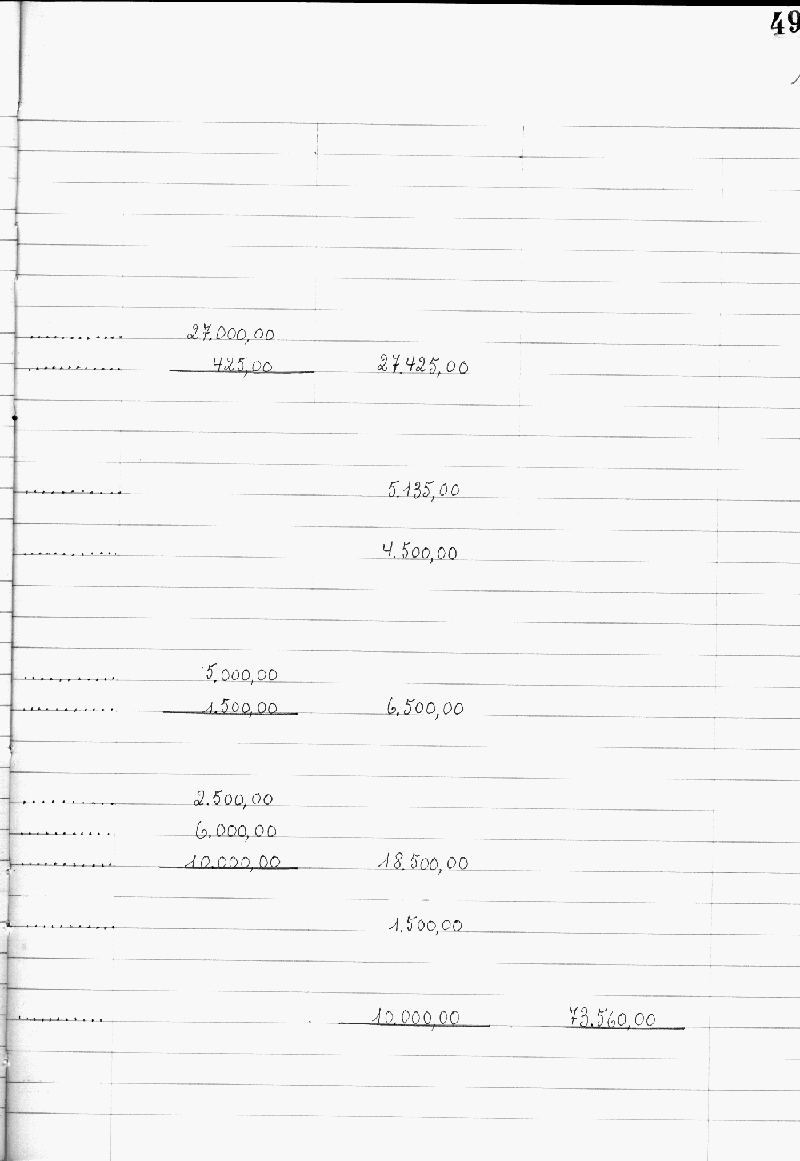 49
............ 27.000,00
............ 425,00 27.425,00
............ 5.135,00
............ 4.500,00
............ 5.000,00
............ 1.500,00 6.500,00
............ 2.500,00
............ 6.000,00
............ 10.000,00 18.500,00
............ 1.500,00
............ 10.000,00 73.560,00